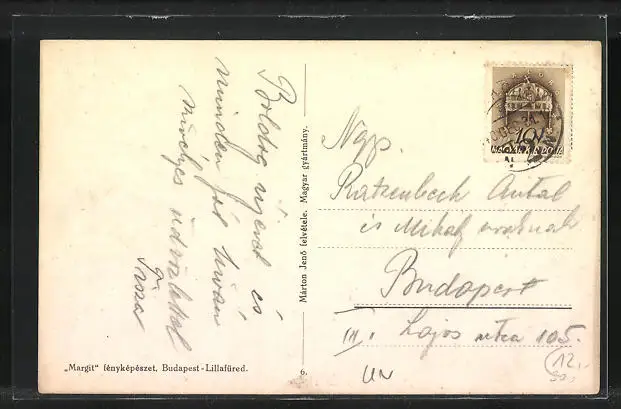 Boldog ujévet és
minden jót kiván
szívélyes üdvözlettel
Márton Jenő felvétele. Magyar gyártmány.
6.
„Margit" fényképészet, Budapest-Lillafüred.
MAGYAR KIR. POSTA
Ngs.
Katzenbeck Antal
és Mihály uraknak
Budapest
III. Lajos utca 105.
12.